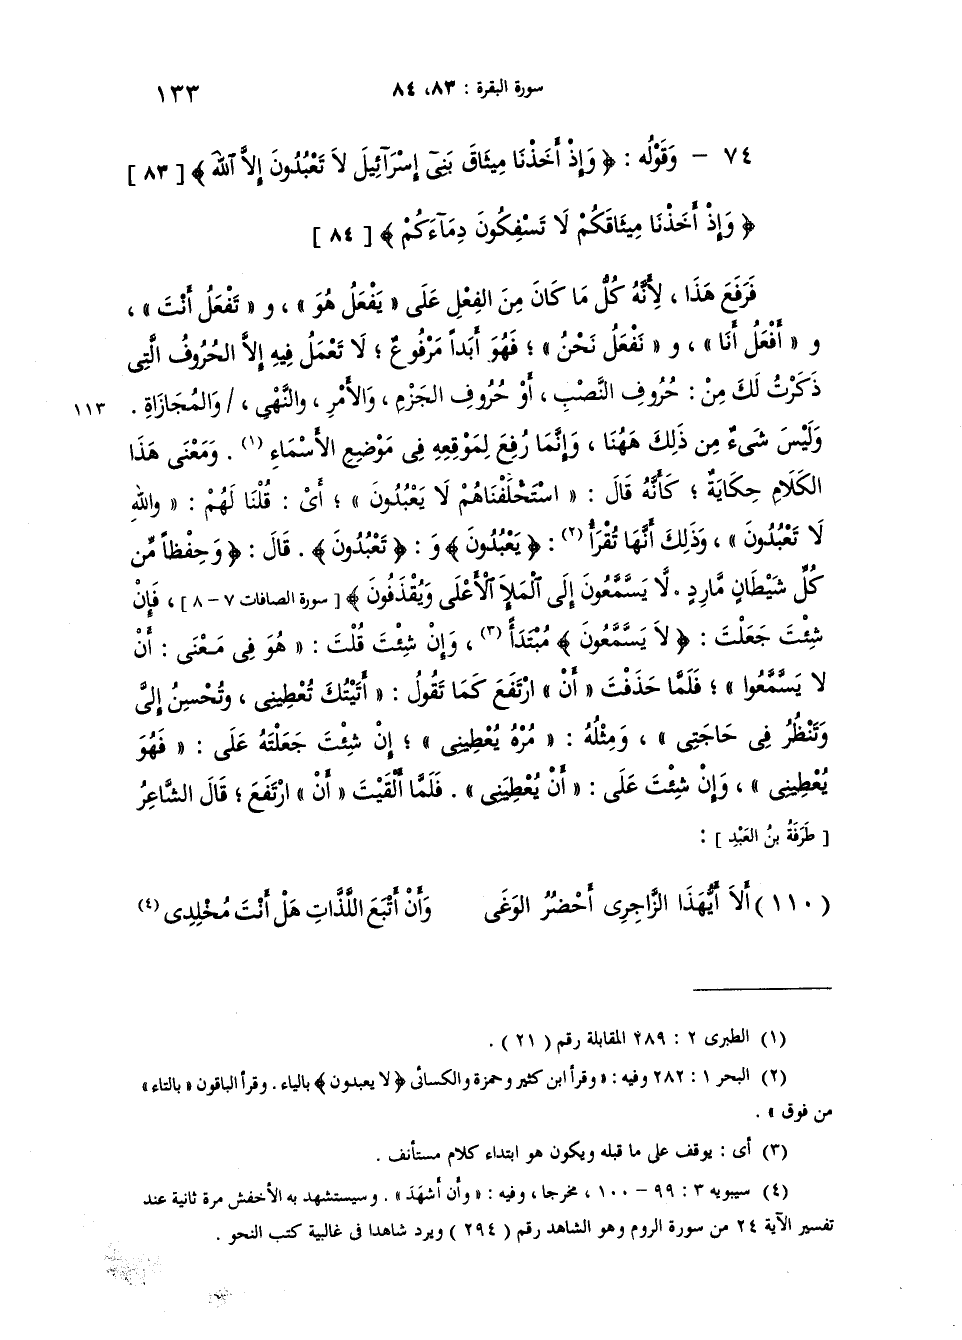 سورة البقرة : ٨٣، ٨٤ ١٣٣
٧٤ - وَقَوْلُه : ﴿ وَإِذْ أَخَذْنَا مِيثَاقَ بَنِىٓ إِسْرَآئِيلَ لاَ تَعْبُدُونَ إِلاَّ ٱللَّهَ ﴾ [ ٨٣ ]
﴿ وَإِذْ أَخَذْنَا مِيثَاقَكُمْ لَا تَسْفِكُونَ دِمَآءَكُمْ ﴾ [ ٨٤ ]
فَرَفَعَ هَذَا ، لِأَنَّهُ كُلُّ مَا كَانَ مِنَ الفِعْلِ عَلَى « يَفْعَلُ هُوَ » ، و « تَفْعَلُ أَنْتَ » ،
و « أَفْعَلُ أَنَا » ، و « نَفْعَلُ نَحْنُ » ؛ فَهُوَ أَبَداً مَرْفُوعٌ ؛ لَا تَعْمَلُ فِيهِ إِلاَّ الحُرُوفُ الَّتِى
ذَكَرْتُ لَكَ مِنْ : حُرُوفِ النَّصْبِ ، أَوْ حُرُوفِ الجَزْمِ ، وَالأَمْرِ ، والنَّهْىِ ، / وَالمُجَازَاةِ . ١١٣
وَلَيْسَ شَىءٌ مِن ذَلِكَ هَهُنَا ، وَإِنَّمَا رُفِعَ لِمَوْقِعِهِ فِى مَوْضِعِ الأَسْمَاءِ (١) . وَمَعْنَى هَذَا
الكَلَامِ حِكَايَةٌ ؛ كَأَنَّهُ قَالَ : « اسْتَحْلَفْنَاهُمْ لَا يَعْبُدُونَ » ؛ أَىْ : قُلْنَا لَهُمْ : « واللهِ
لَا تَعْبُدُونَ » ، وَذَلِكَ أَنَّهَا تُقْرَأُ (٢) : ﴿ يَعْبُدُونَ ﴾ وَ : ﴿ تَعْبُدُونَ ﴾ . قَالَ : ﴿ وَحِفْظاً مِّن
كُلِّ شَيْطَانٍ مَّارِدٍ . لَّا يَسَّمَّعُونَ إِلَى ٱلْمَلَإِ ٱلْأَعْلَى وَيُقْذَفُونَ ﴾ [ سورة الصافات ٧ – ٨ ] ، فَإِنْ
شِئْتَ جَعَلْتَ : ﴿ لاَ يَسَّمَّعُونَ ﴾ مُبْتَدَأً (٣) ، وَإِنْ شِئْتَ قُلْتَ : « هُوَ فِى مَعْنَى : أَنْ
لا يَسَّمَّعُوا » ؛ فَلَمَّا حَذَفْتَ « أَنْ » ارْتَفَعَ كَمَا تَقُولُ : « أَتَيْتُكَ تُعْطِينِى ، وتُحْسِنُ إِلىَّ
وَتَنْظُرُ فِى حَاجَتِى » ، وَمِثْلُهُ : « مُرْهُ يُعْطِينِى » ؛ إِنْ شِئْتَ جَعَلْتَهُ عَلَى : « فَهُوَ
يُعْطِينِى » ، وَإِنْ شِئْتَ عَلَى : « أَنْ يُعْطِيَنِى » . فَلَمَّا أَلْقَيْتَ « أَنْ » ارْتَفَعَ ؛ قَالَ الشَّاعِرُ
[ طَرَفَةُ بنُ العَبْدِ ] :
( ١١٠ ) أَلاَ أَيُّهَذَا الزَّاجِرِى أَحْضُرُ الوَغَى وَأَنْ أَتْبَعَ اللَّذَّاتِ هَلْ أَنْتَ مُخْلِدِى (٤)
(١) الطبرى ٢ : ٢٨٩ المقابلة رقم ( ٢١ ) .
(٢) البحر ١ : ٢٨٢ وفيه : « وقرأ ابن كثير وحمزة والكسائى ﴿ لا يعبدون ﴾ بالياء . وقرأ الباقون « بالتاء »
من فوق » .
(٣) أى : يوقف على ما قبله ويكون هو ابتداء كلام مستأنف .
(٤) سيبويه ٣ : ٩٩ – ١٠٠ ، مخرجا ، وفيه : « وأن أشهَدَ » . وسيستشهد به الأخفش مرة ثانية عند
تفسير الآية ٢٤ من سورة الروم وهو الشاهد رقم ( ٢٩٤ ) ويرد شاهدا فى غالبية كتب النحو .